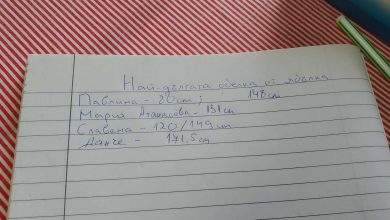 Най-дългата обелка от ябълка
Павлина - 80см; 148см
Мария Атанасова - 131см
Славена - 120/149см
Данче - 141,5см